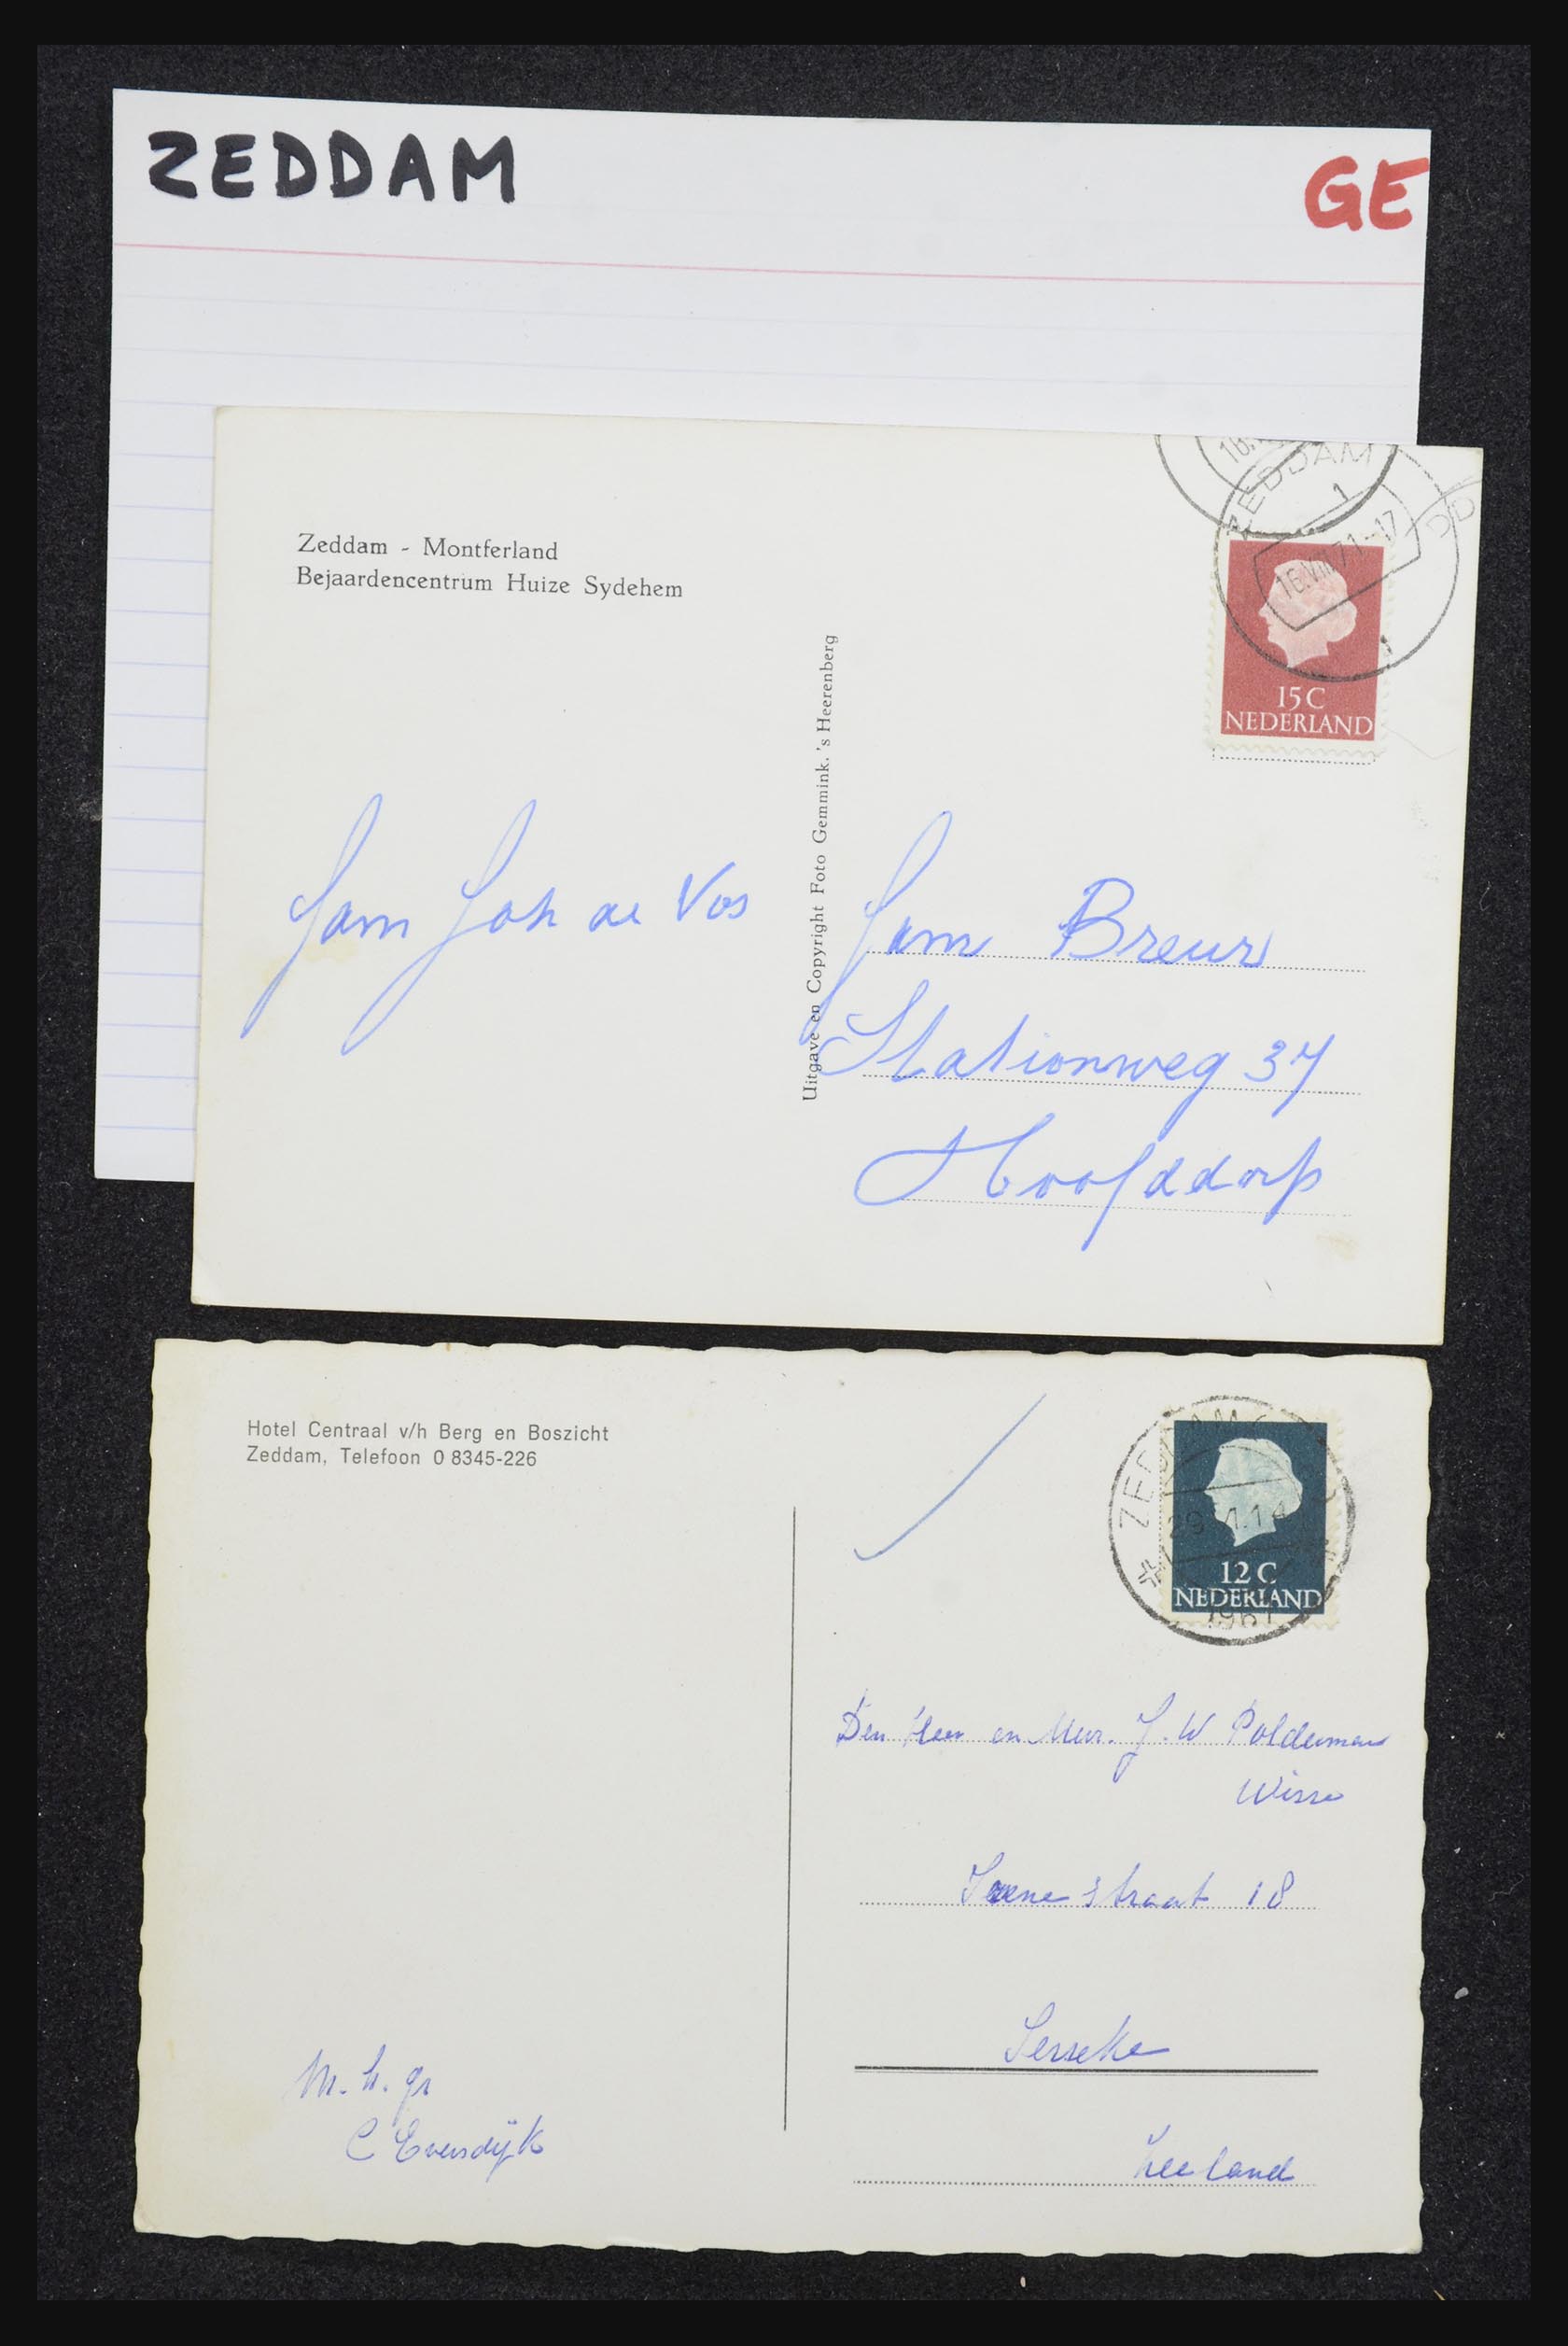 ZEDDAM
GE
ZEDDAM
1
16.VIII.71.-17
Zeddam - Montferland
Bejaardencentrum Huize Sydehem
15 C
NEDERLAND
Uitgave en Copyright Foto Gemmink. 's Heerenberg
Fam Joh de Vos
Fam Breur
Stationweg 37
Hoofddorp
Hotel Centraal v/h Berg en Boszicht
Zeddam, Telefoon 0 8345-226
ZEDDAM
12 C
NEDERLAND
1967
Den Heer en Mevr. J. W Polderman
Wisse
Irene straat 18
Ierseke
Zeeland
M. h. gr
C Eversdijk